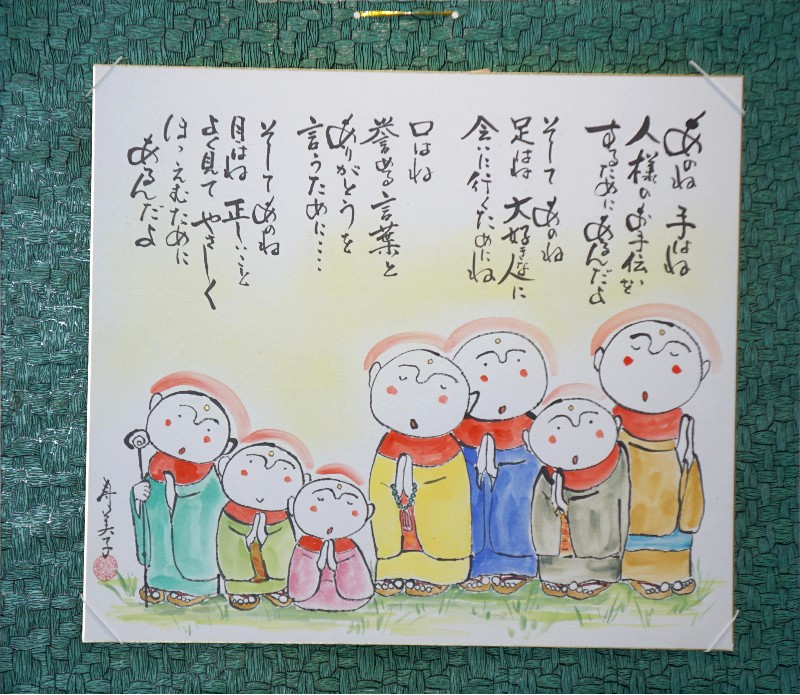 あのね 手はね
人様のお手伝を
するためにあるんだよ
そして あのね
足はね 大好きな人に
会いに行くためにね
口はね
誉める言葉と
ありがとうを
言うために‥‥
そして あのね
目はね 正しいことを
よく見て やさしく
ほゝえむために
あるんだよ